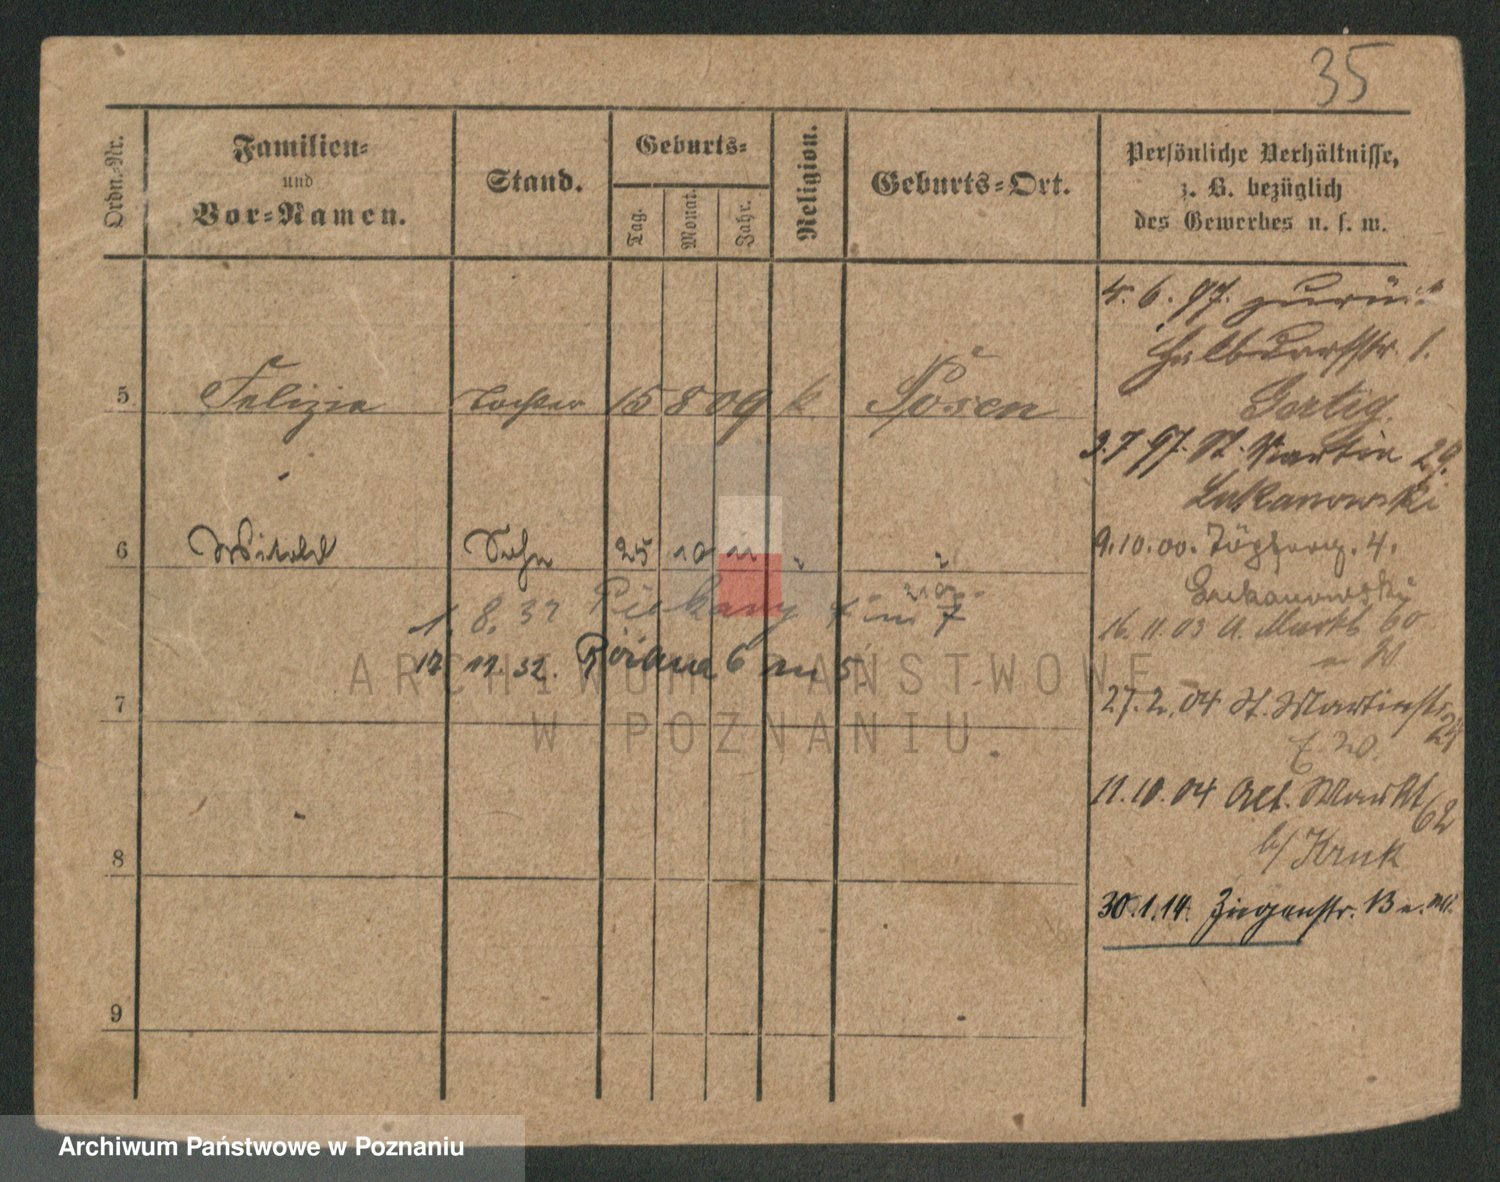 35
Ordn.-Nr.
Familien-
und
Vor-Namen.
Stand.
Geburts-
Tag.
Monat.
Jahr.
Religion.
Geburts-Ort.
Persönliche Verhältnisse,
z. B. bezüglich
des Gewerbes u. s. w.
5 Felizia Tochter 15 8 09 k. Posen
6 Witold Sohn 25 10 11 " "
1. 8. 32 Piekary
17. 11. 32. 6 m 5
7
8
9
4. 6. 97. zurück
Halbdorfstr. 1.
Gortig.
3. 7 97. St. Martin 29.
Lukanowski
9. 10. 00. 4.
Lukanowski
16. 11. 03 A. Markt 60
27. 2. 04 St. Martinstr. 24
11. 10. 04 Alt. Markt 62
b/ Kruk
30. 1. 14. Ziegenstr. 13
ARCHIWUM PAŃSTWOWE
W POZNANIU
Archiwum Państwowe w Poznaniu